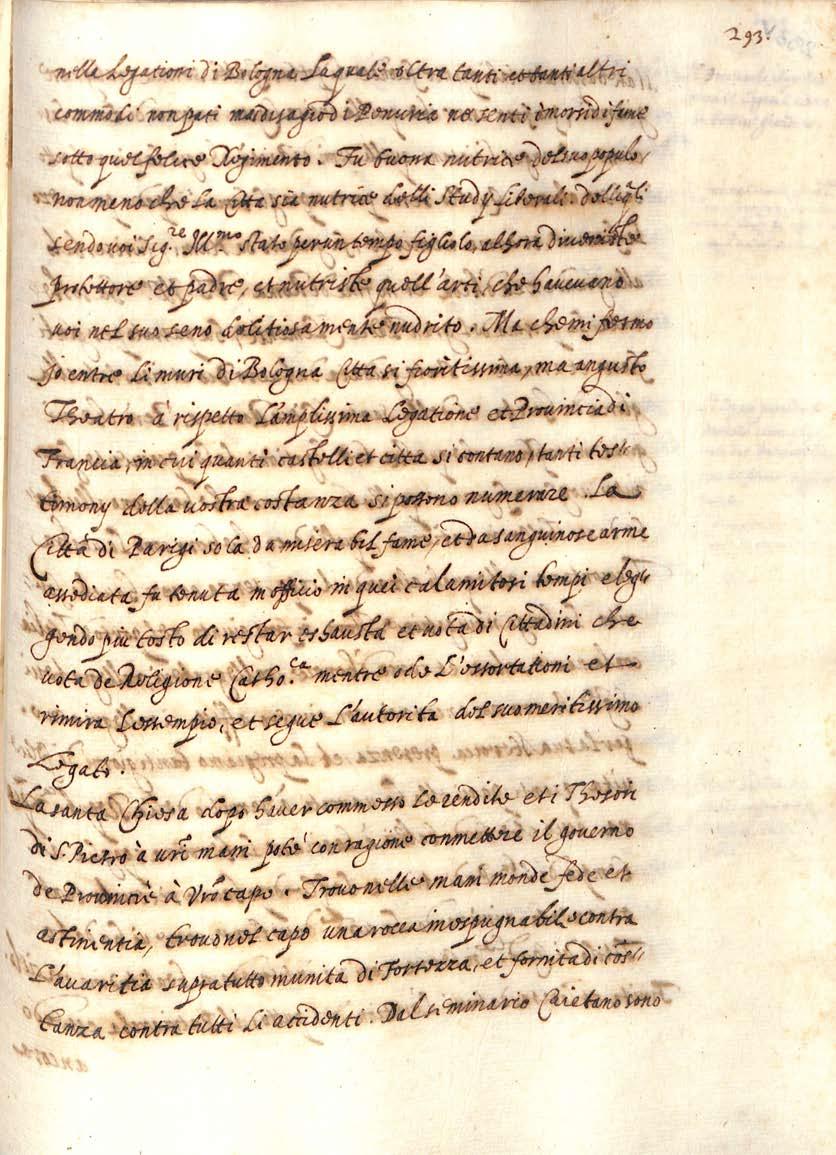 293.
nella Legationi di Bologna Laquale oltra tanti et tanti altri
commodi non pati mai disagio di Penuria ne senti i morsi di fame
sotto quel felice Regimento. Fu buona nutrice del suo populo,
non meno che La Citta sia nutrice delli Study Literali. delli qli
sendo voi Sig.re Ill.mo stato per un tempo figliolo, alhora diveniste
protettore et padre, et nutriste quell'arti, che havevano
voi nel suo seno delitiosamente nudrito. Ma che mi fermo
Jo entre Li muri di Bologna Citta si fioritissima, ma angusto
Theatro à rispetto L'amplissima Legatione et Provincia di
Francia, in cui quanti castelli et citta si contano, tanti tes"
timony della vostra costanza si possono numerare. La
Citta di Parigi sola da miserabil fame, et da sanguinose arme
assediata fu tenuta in officio in quei calamitosi tempi eleg"
gendo piu tosto di restar eshausta et vota di Cittadini che
vota de Religione Catho.ca mentre ode L'essortationi et
rimira L'essempio, et segue L'autorita del suo meritissimo
Legato.
La santa Chiesa dopo haver commesso le rendite et i Thesori
di S. Pietro à vre mani poté con ragione conmettere il governo
de Provincie à Vro capo. Trovo nelle mani monde fede et
astinentia, trovo nel capo una rocca inespugnabile contra
L'avaritia supra tutto munita di Fortezza, et fornita di cos"
tanza contra tutti Li accidenti. Dal seminario Caietano sono